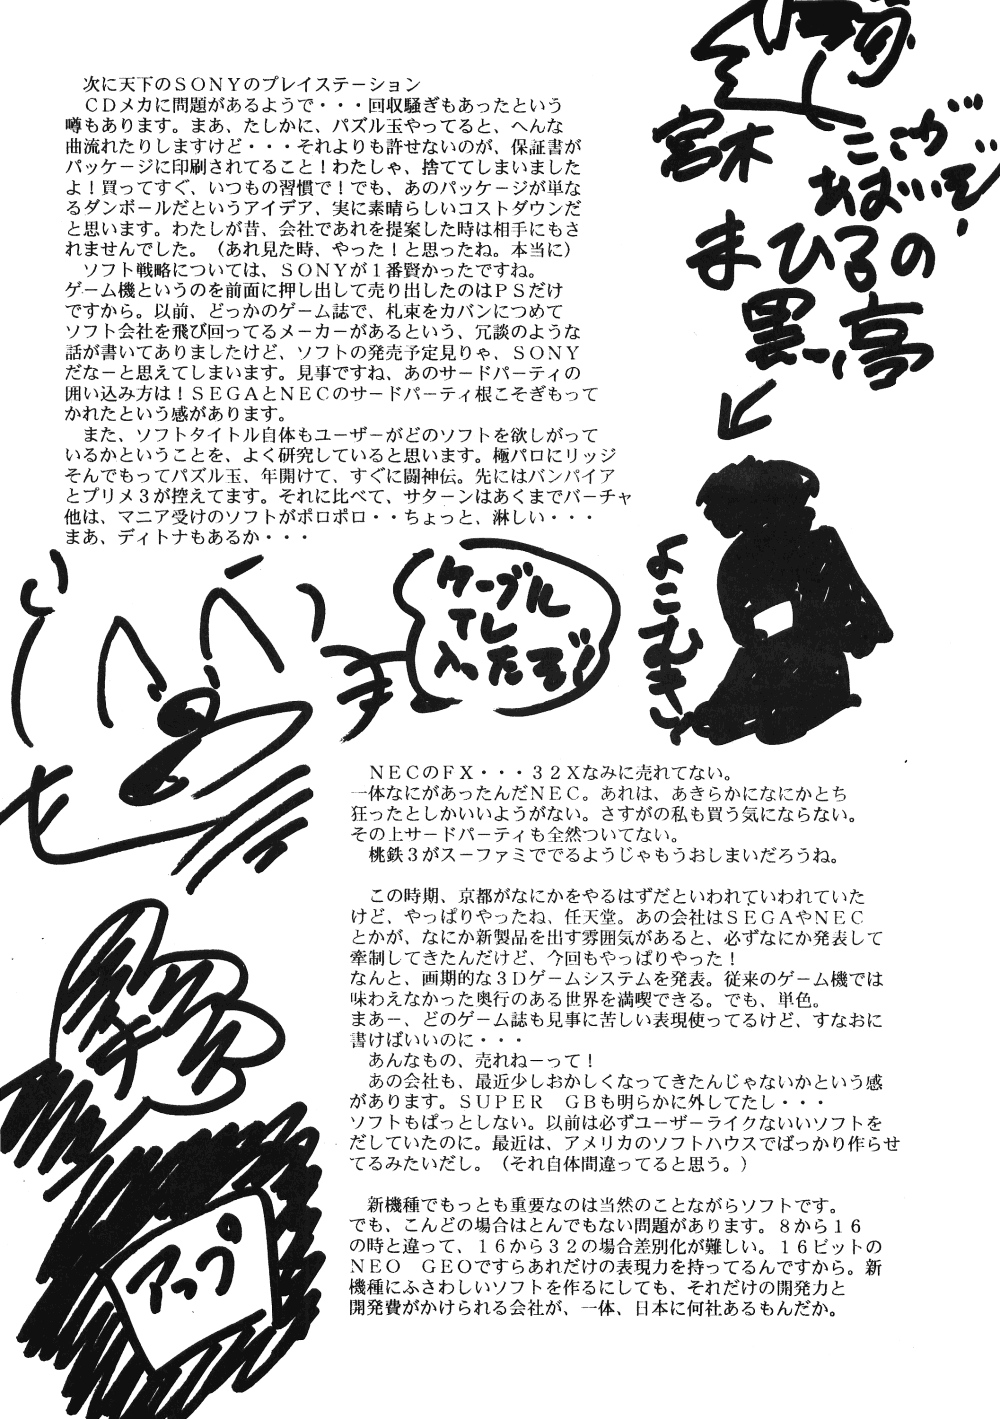 次に天下のSONYのプレイステーション
CDメカに問題があるようで・・・回収騒ぎもあったという
噂もあります。まあ、たしかに、パズル玉やってると、へんな
曲流れたりしますけど・・・それよりも許せないのが、保証書が
パッケージに印刷されてること！わたしゃ、捨ててしまいました
よ！買ってすぐ、いつもの習慣で！でも、あのパッケージが単な
るダンボールだというアイデア、実に素晴らしいコストダウンだ
と思います。わたしが昔、会社であれを提案した時は相手にもさ
れませんでした。（あれ見た時、やった！と思ったね。本当に）
ソフト戦略については、SONYが1番賢かったですね。
ゲーム機というのを前面に押し出して売り出したのはPSだけ
ですから。以前、どっかのゲーム誌で、札束をカバンにつめて
ソフト会社を飛び回ってるメーカーがあるという、冗談のような
話が書いてありましたけど、ソフトの発売予定見りゃ、SONY
だなーと思えてしまいます。見事ですね、あのサードパーティの
囲い込み方は！SEGAとNECのサードパーティ根こそぎもって
かれたという感があります。
また、ソフトタイトル自体もユーザーがどのソフトを欲しがって
いるかということを、よく研究していると思います。極パロにリッジ
そんでもってパズル玉、年開けて、すぐに闘神伝。先にはバンパイア
とプリメ3が控えてます。それに比べて、サターンはあくまでバーチャ
他は、マニア受けのソフトがポロポロ・・ちょっと、淋しい・・・
まあ、ディトナもあるか・・・
宮木
ここが
あまいぞ！
まひるの
黒亭
よこむき
ケーブル
TV
入ったぞ！
NECのFX・・・32Xなみに売れてない。
一体なにがあったんだNEC。あれは、あきらかになにかとち
狂ったとしかいいようがない。さすがの私も買う気にならない。
その上サードパーティも全然ついてない。
桃鉄3がスーファミででるようじゃもうおしまいだろうね。
この時期、京都がなにかをやるはずだといわれていわれていた
けど、やっぱりやったね、任天堂。あの会社はSEGAやNEC
とかが、なにか新製品を出す雰囲気があると、必ずなにか発表して
牽制してきたんだけど、今回もやっぱりやった！
なんと、画期的な3Dゲームシステムを発表。従来のゲーム機では
味わえなかった奥行のある世界を満喫できる。でも、単色。
まあー、どのゲーム誌も見事に苦しい表現使ってるけど、すなおに
書けばいいのに・・・
あんなもの、売れねーって！
あの会社も、最近少しおかしくなってきたんじゃないかという感
があります。SUPER GBも明らかに外してたし・・・
ソフトもぱっとしない。以前は必ずユーザーライクないいソフトを
だしていたのに。最近は、アメリカのソフトハウスでばっかり作らせ
てるみたいだし。（それ自体間違ってると思う。）
新機種でもっとも重要なのは当然のことながらソフトです。
でも、こんどの場合はとんでもない問題があります。8から16
の時と違って、16から32の場合差別化が難しい。16ビットの
NEO GEOですらあれだけの表現力を持ってるんですから。新
機種にふさわしいソフトを作るにしても、それだけの開発力と
開発費がかけられる会社が、一体、日本に何社あるもんだか。
アップ